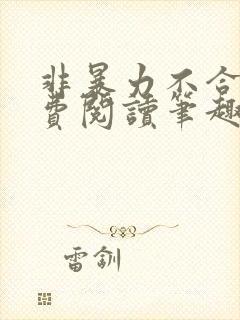 非暴力不合
費閱讀筆趣
雷釧